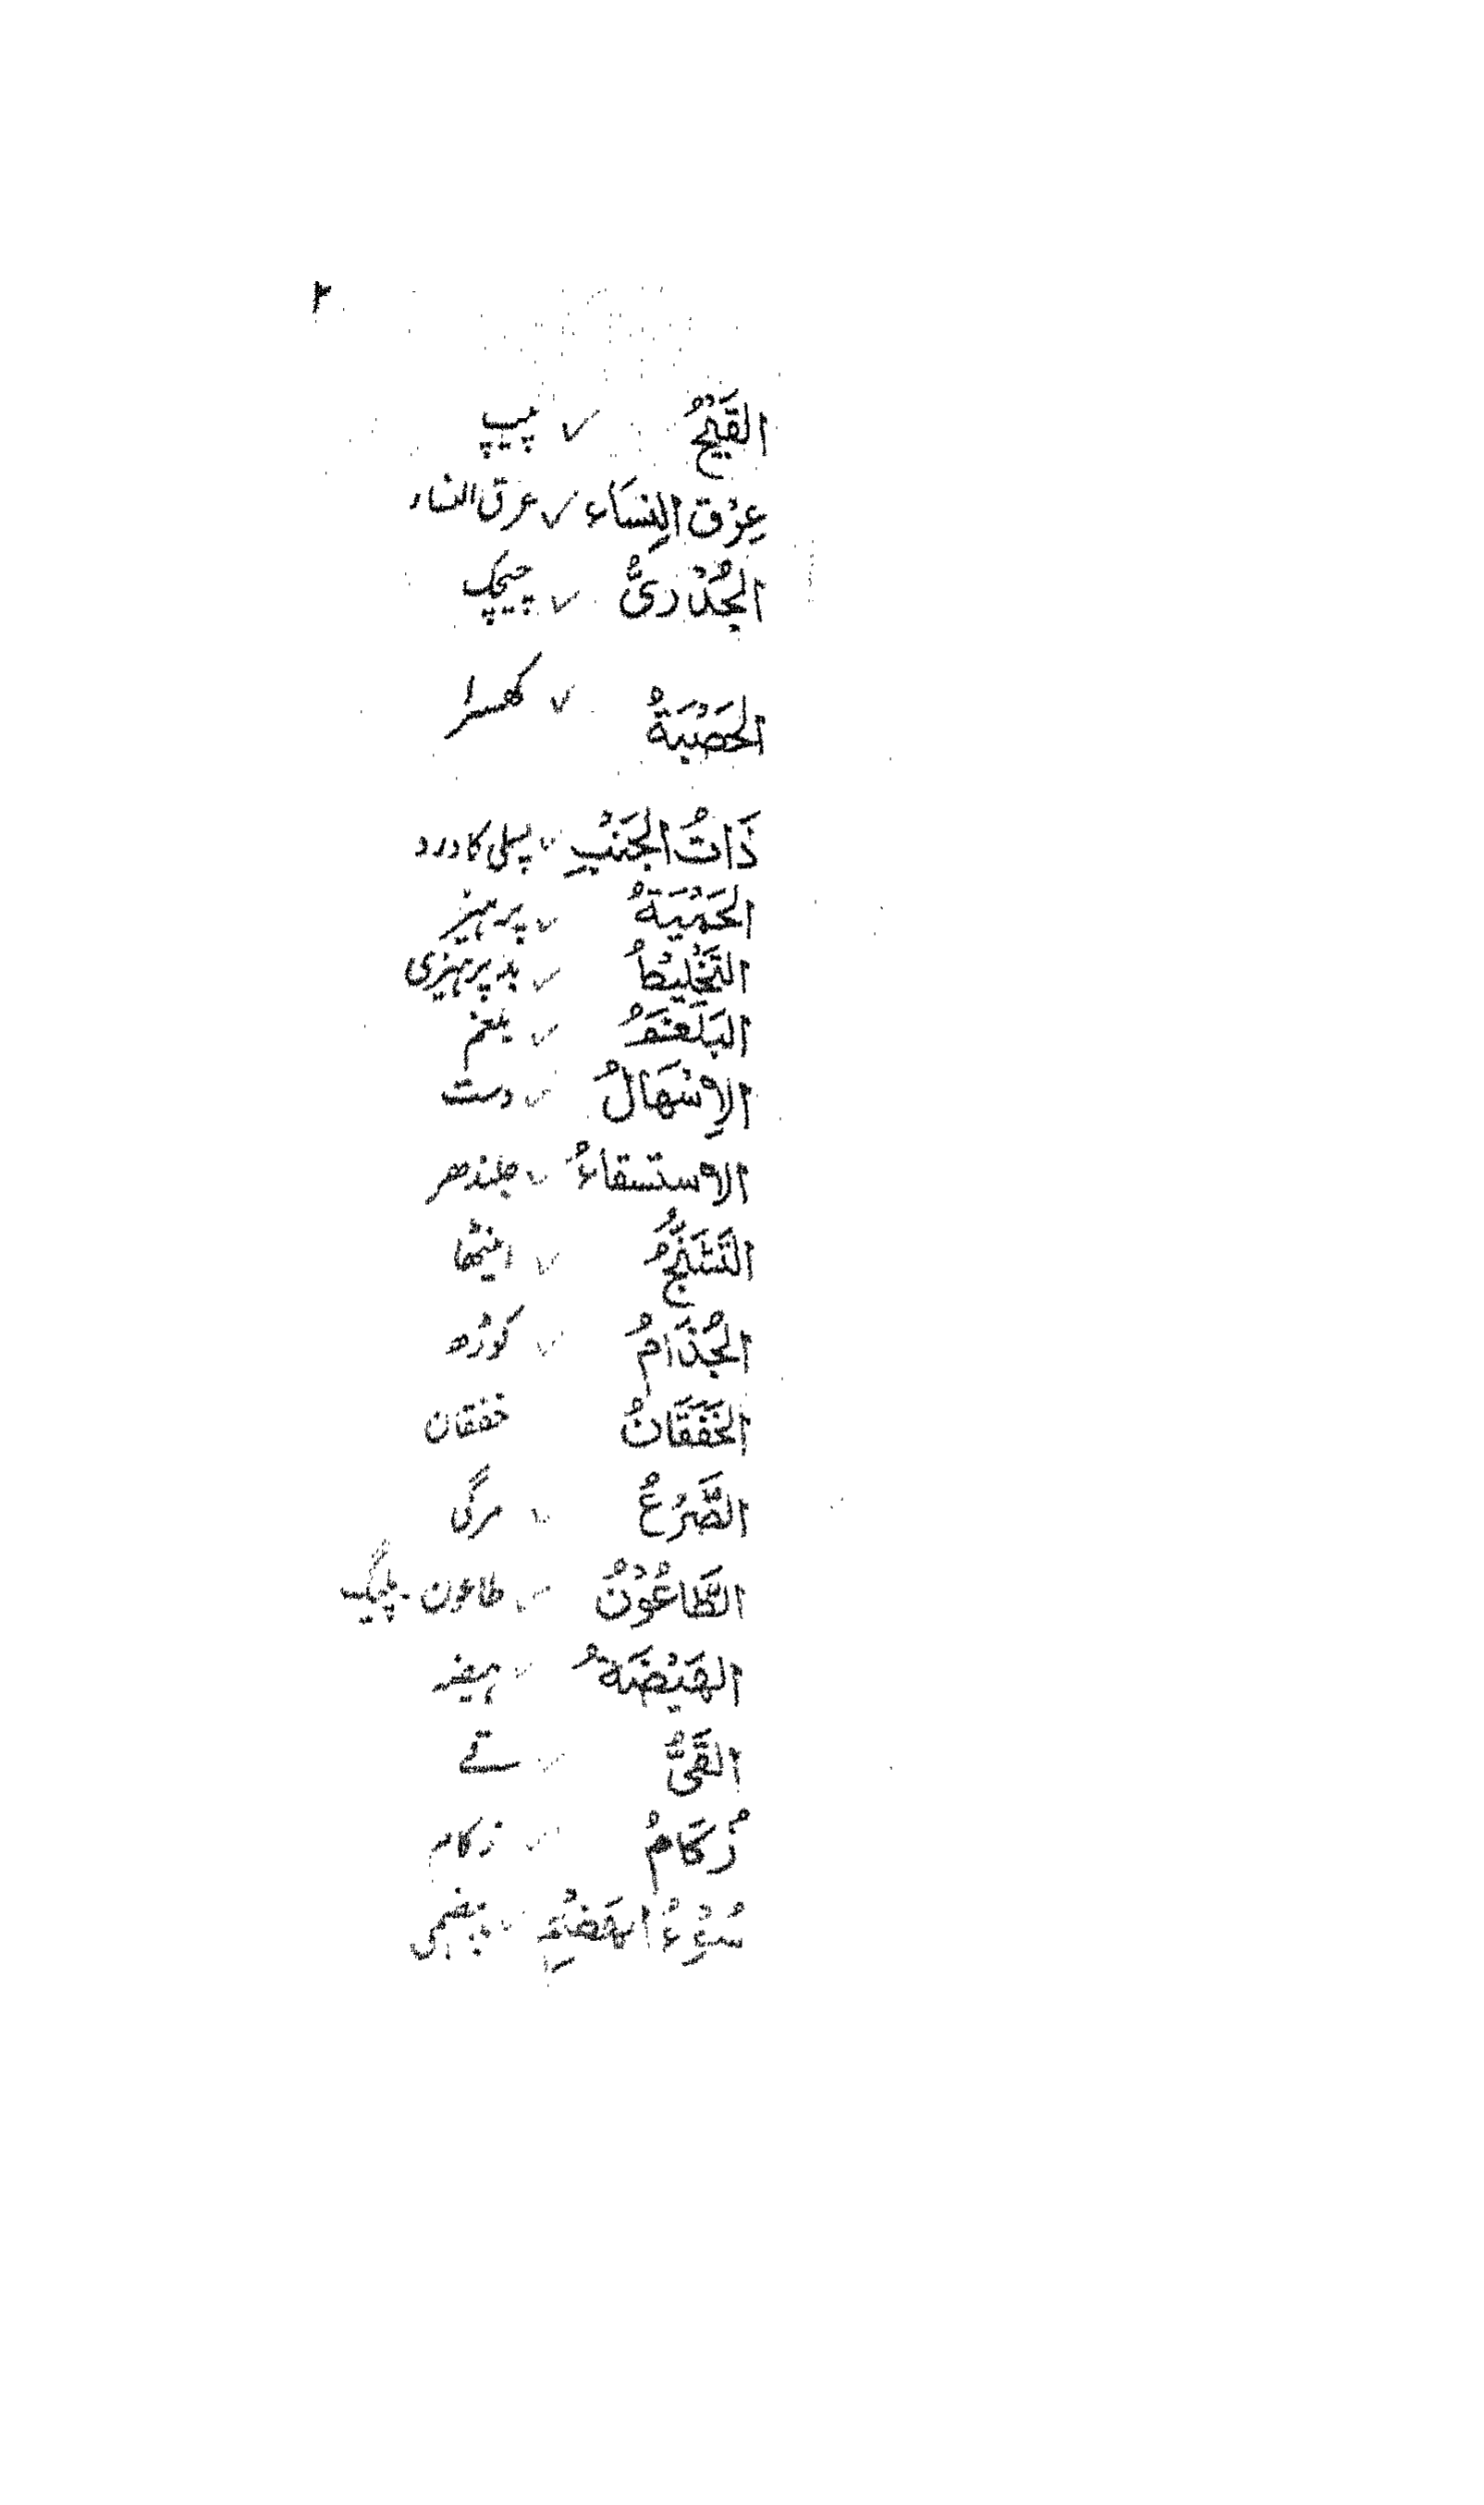 ۲
القَيْحُ ✓ پیپ
عِرْق النِسَاء ✓ عرق النساء
الجُدْرِىُّ ✓ چیچک
الحَصْبَةُ ✓ کھسرا
ذَاتُ الجَنْبِ ✓ پسلی کا درد
الحَمْيَةُ ✓ پرہیز
التَخْلِيْطُ ✓ بد پرہیزی
البَلْغَمُ ✓ بلغم
الاِسْهَالُ ✓ دست
الاِستسقاءُ ✓ جلندھر
التَشَنُّجُ ✓ اینٹھا
الجُذَامُ ✓ کوڑھ
الخَفَقَانُ خفقان
الصَّرْعُ ✓ مرگی
الطَّاعُوْنُ ✓ طاعون ۔ پلیگ
الهَيْضَةُ ✓ ہیضہ
القَىْءُ ✓ قے
زُكَامُ ✓ زکام
سُوْءُ الهَضْمِ ✓ بدہضمی